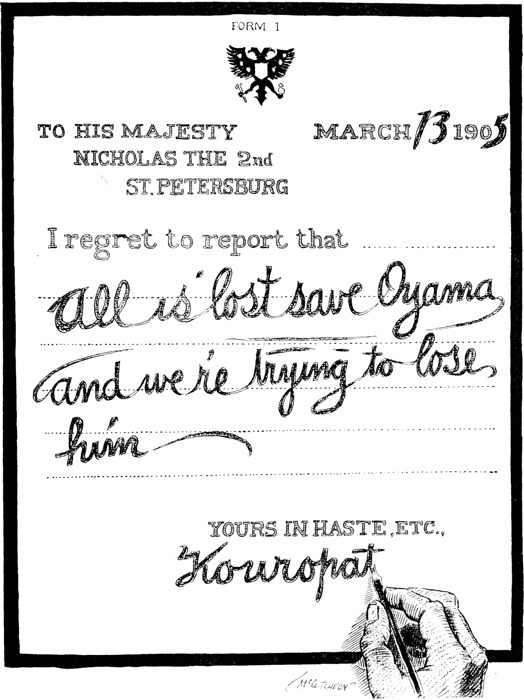 FORM 1
TO HIS MAJESTY MARCH 13 1905
NICHOLAS THE 2nd
ST. PETERSBURG
I regret to report that
all is lost save Oyama
and we're trying to lose
him
YOURS IN HASTE, ETC.,
Kouropat
McCutcheon